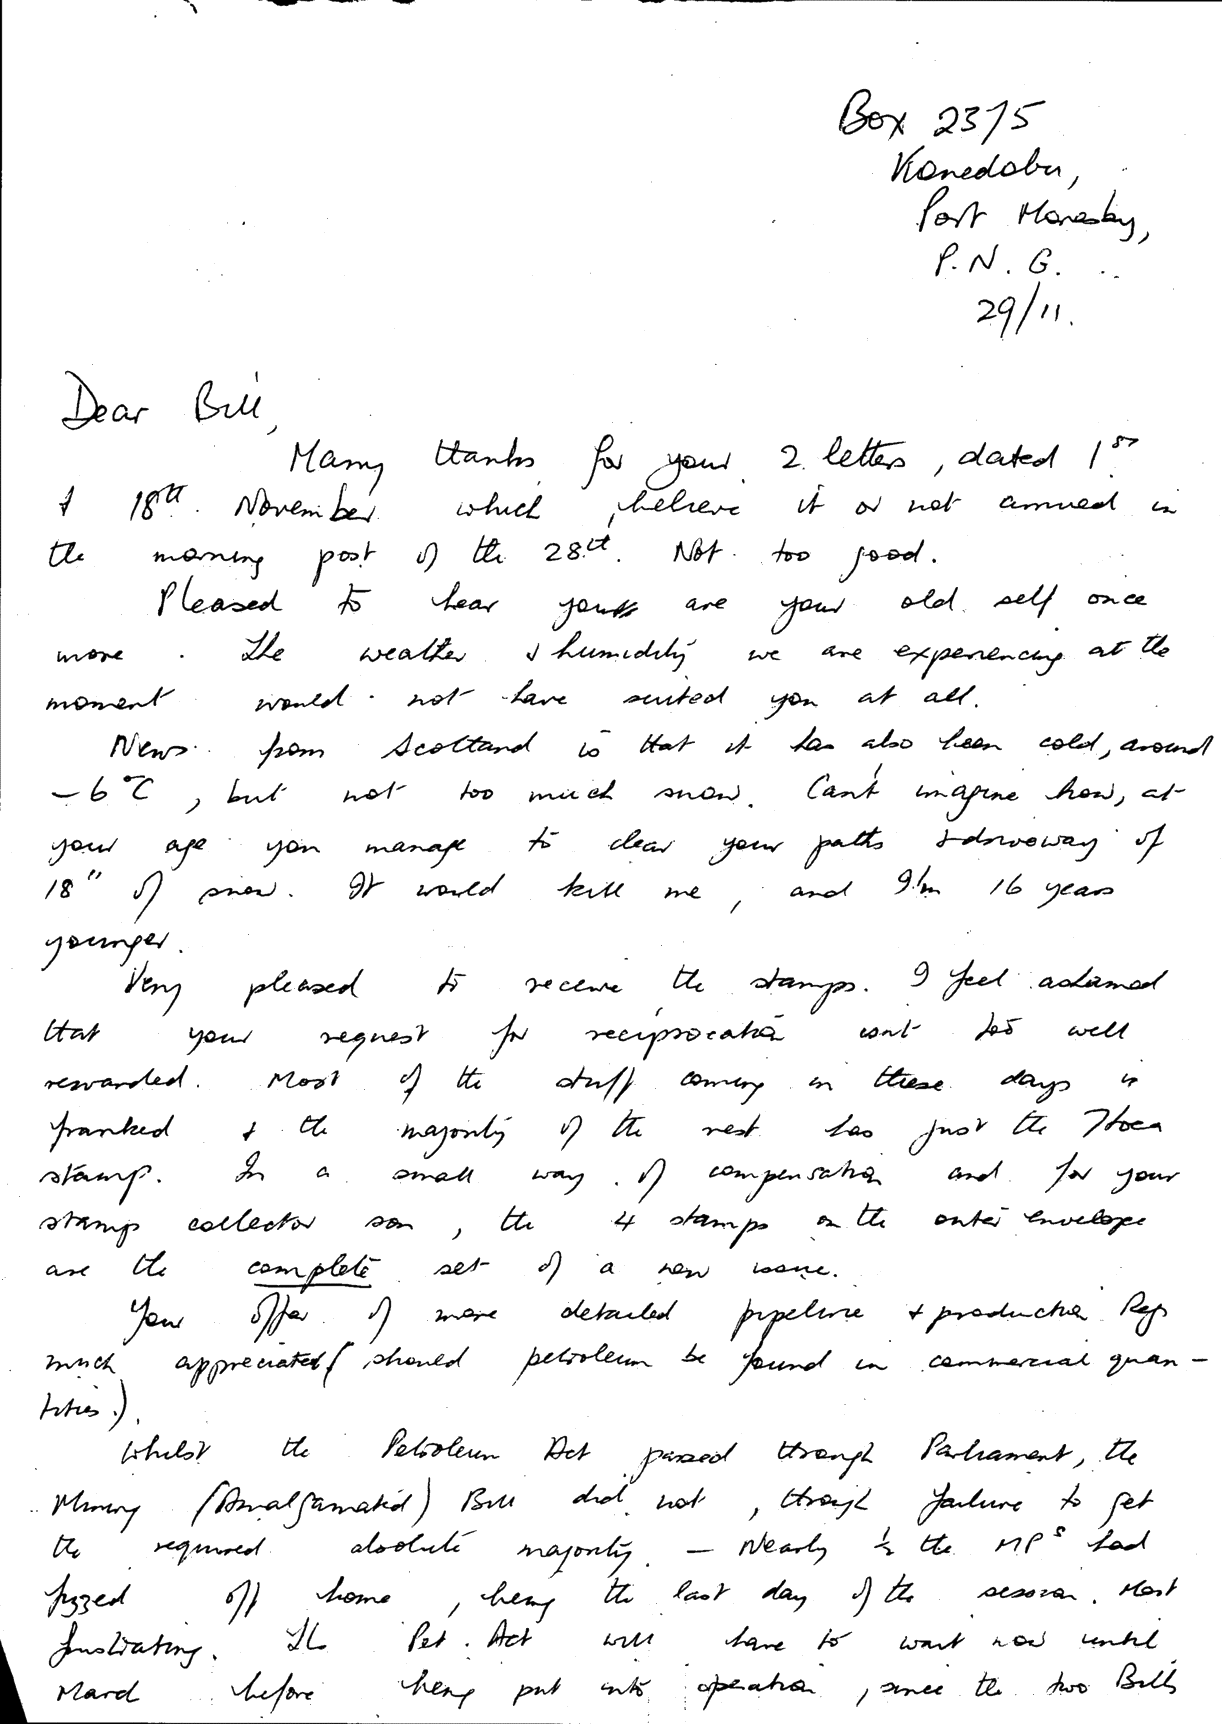 Box 2375
Konedobu,
Port Moresby,
P.N.G.
29/11.
Dear Bill,
Many thanks for your 2 letters, dated 1st
& 18th November which, believe it or not arrived in
the morning post of the 28th. Not too good.
Pleased to hear you are your old self once
more. The weather & humidity we are experiencing at the
moment would not have suited you at all.
News from Scotland is that it has also been cold, around
-6°C, but not too much snow. Can't imagine how, at
your age you manage to clear your paths & driveway of
18" of snow. It would kill me, and I'm 16 years
younger.
Very pleased to receive the stamps. I feel ashamed
that your request for reciprocation isn't too well
rewarded. Most of the stuff coming in these days is
franked & the majority of the rest has just the 7toea
stamp. In a small way of compensation and for your
stamp collector son, the 4 stamps on the outer envelope
are the complete set of a new issue.
Your offer of more detailed pipeline & production Regs
much appreciated (should petroleum be found in commercial quan-
tities.).
Whilst the Petroleum Act passed through Parliament, the
Mining (Amalgamated) Bill did not, through failure to get
the required absolute majority. - Nearly ½ the MPs had
fizzed off home, being the last day of the session. Most
frustrating. The Pet. Act will have to wait now until
March before being put into operation, since the two Bills